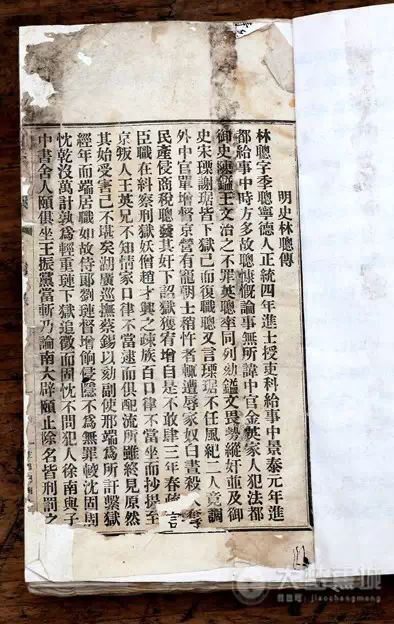 明史林聰傳
林聰字季聰寧德人正統四年進士授吏科給事中景泰元年進
都給事中時方多故聰慷慨論事無所諱中官金英家人犯法都
御史陳鎰王文治之不罪英聰率同列劾鎰文畏勢縱奸並及御
史宋瑮謝琚皆下獄已而復職聰又言瑮琚不任風紀二人竟調
外中官單增督京營有寵朝士稍忤者輒遭辱家奴白晝殺奪
民產侵商稅聰發其奸下詔獄獲宥增自是不敢肆三年春疏言
臣職在糾察刑獄妖僧趙才興之疎族百口律不當坐而抄提至
京叛人王英兄不知情家口律不當逮而俱配流所雖終見原然
其始受害已不堪矣湖廣巡撫蔡錫以劾副使邢端為所訐繫獄
經年而端居職如故侍郎劉璉督餉侵隱不為無罪較沈固周
忱乾沒萬計孰為輕重璉下獄追徵而固忱不問犯人徐南與子
中書舍人頤俱坐王振黨當斬乃論南大辟頤止除名皆刑罰之
jiaochengmeng